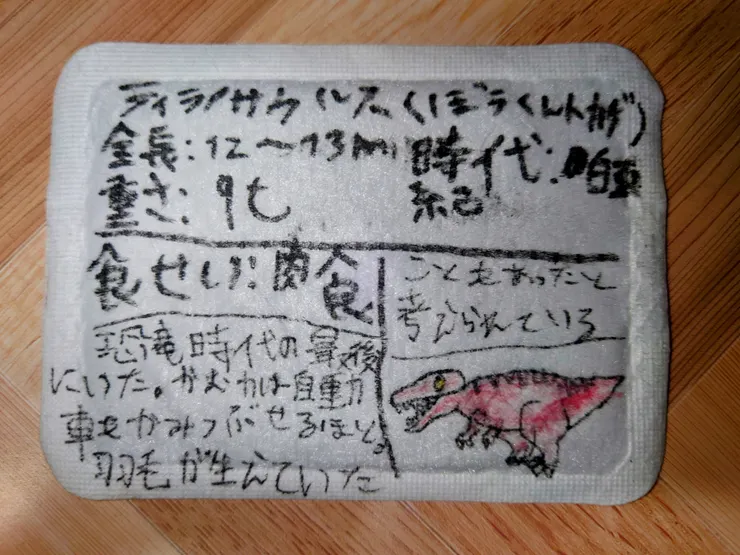 ティラノサウルス(ぼうくんトカゲ)
全長:12〜13m 時代:白亜
重さ:9t 紀
食せい:肉食
恐竜時代の最後
にいた。かむ力は自動
車をかみつぶせるほど。
羽毛が生えていた
こともあったと
考えられている